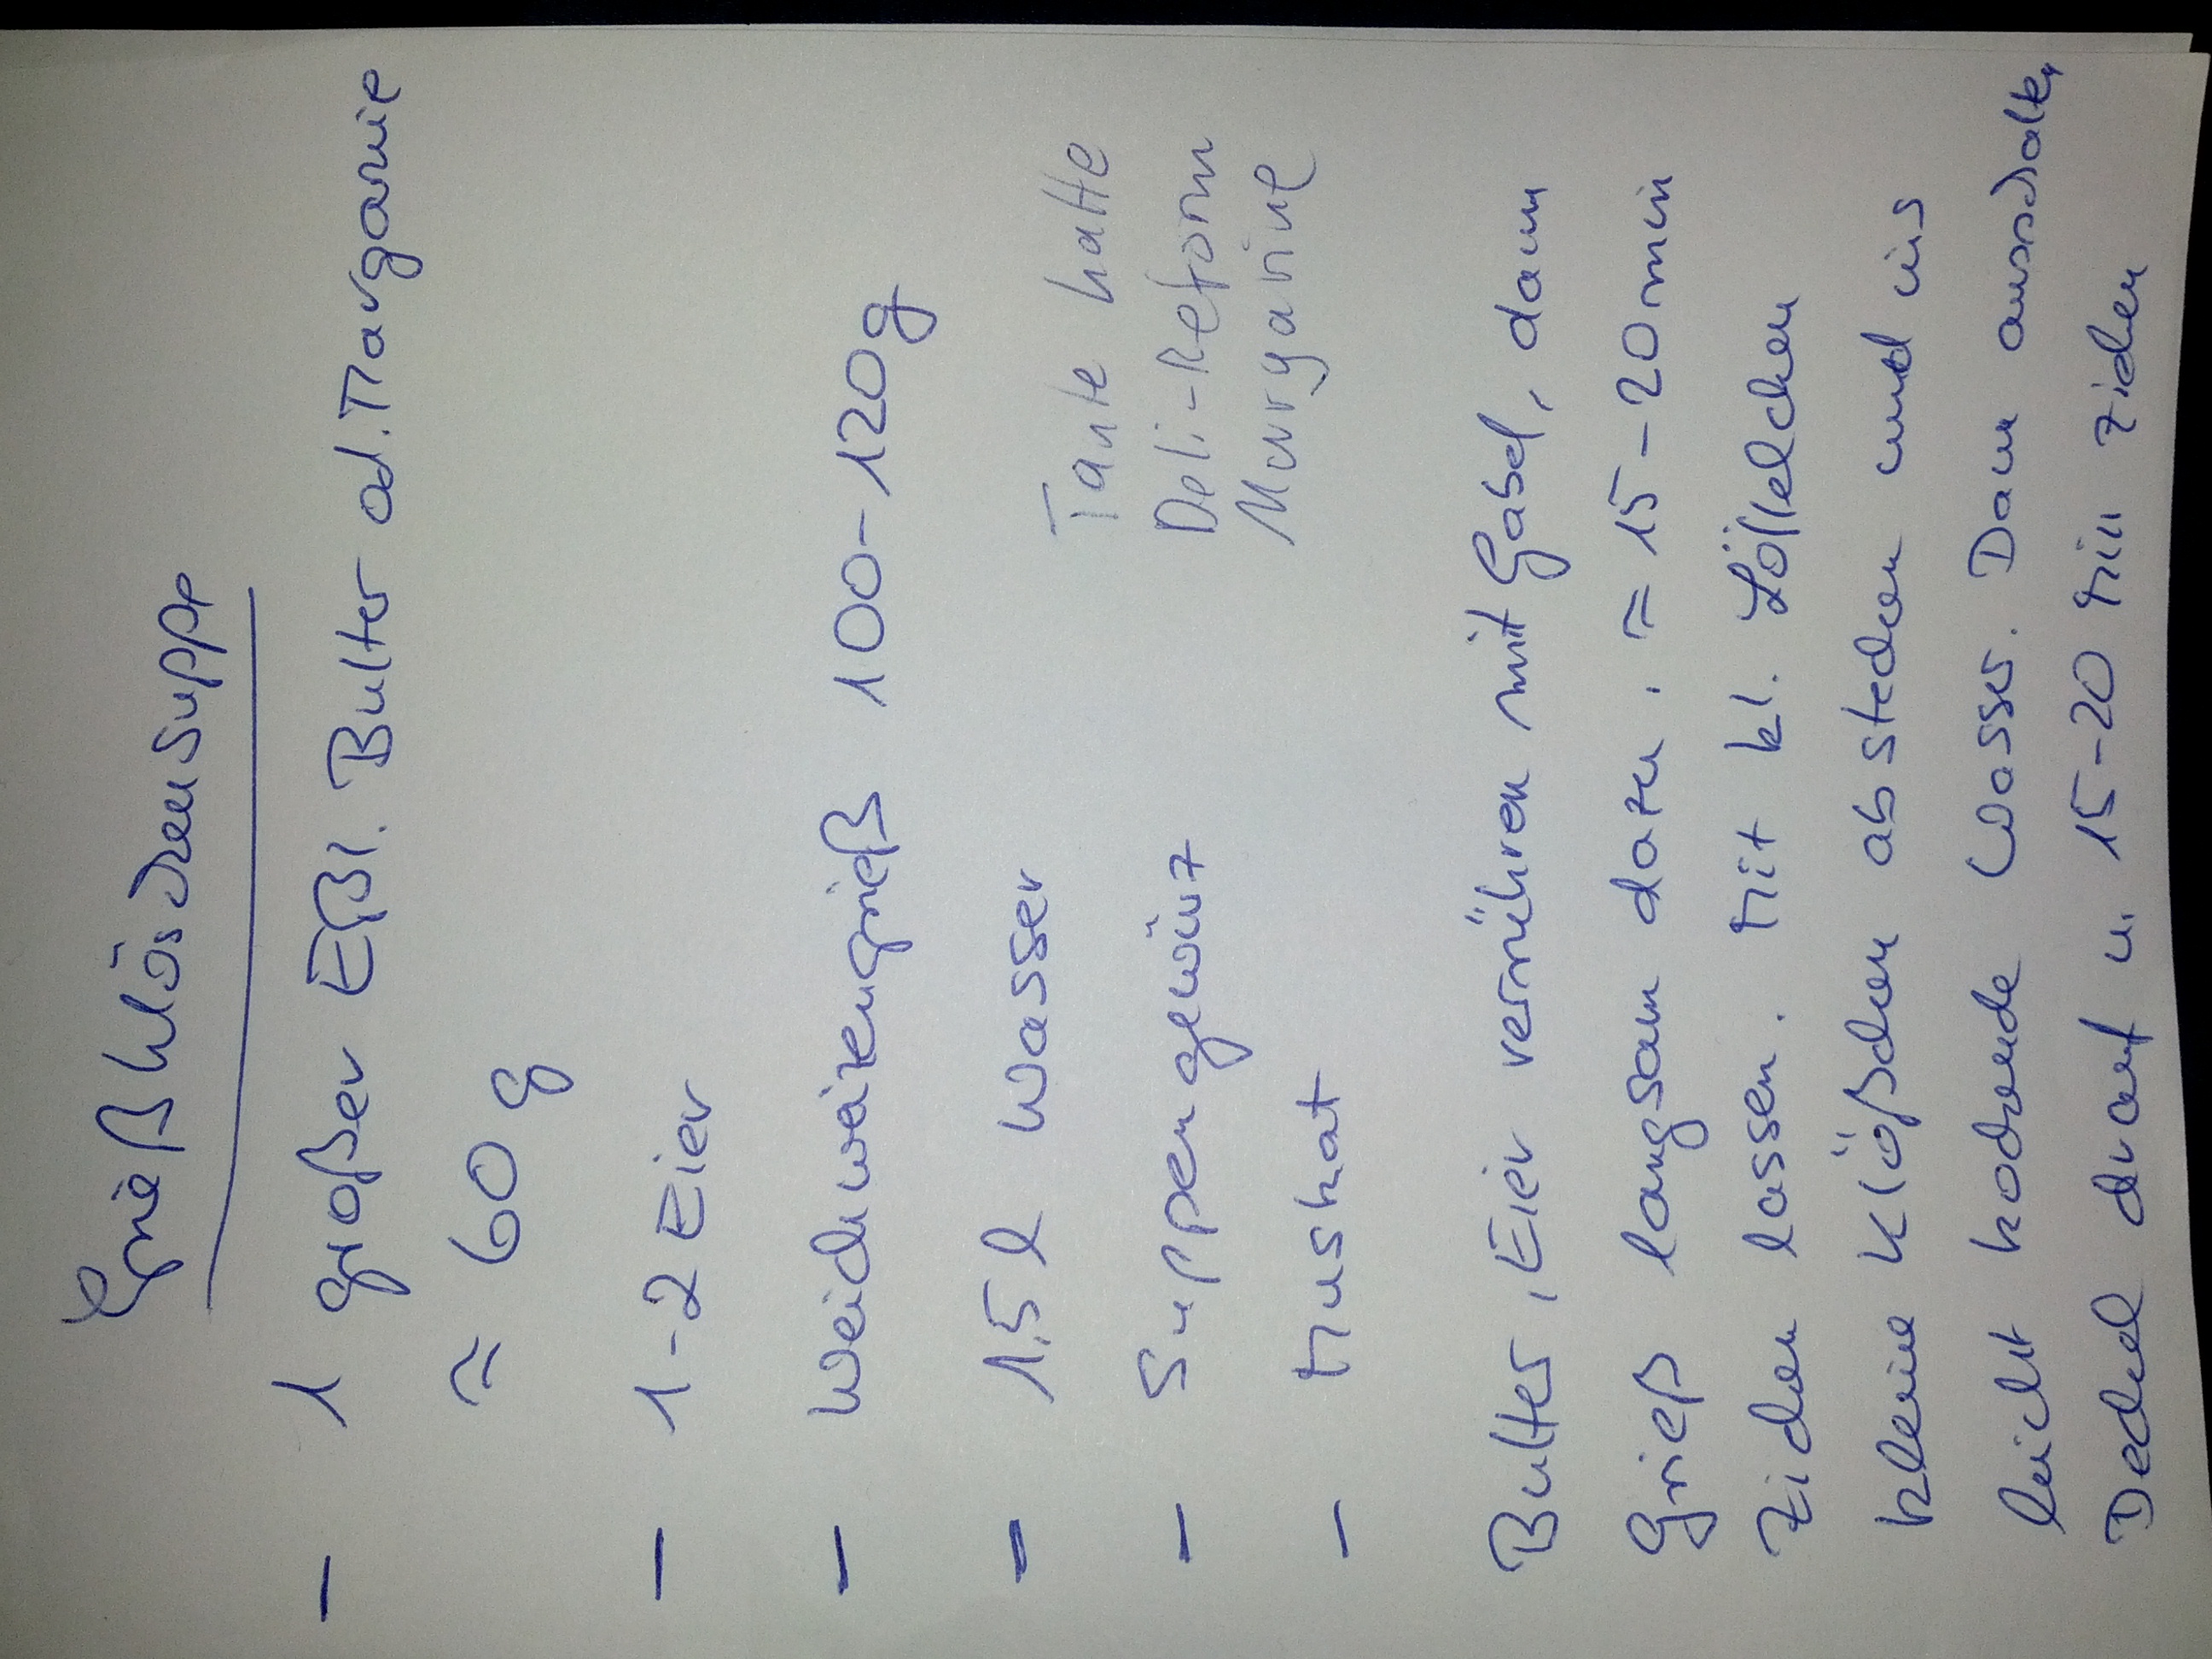 Grießklöschensuppe
- 1 großer Eßl. Butter od. Margarine
≈ 60 g
- 1-2 Eier
- Weichweizengrieß 100-120g
- 1.5 l Wasser
Tante hatte
- Suppengewürz
Deli-Reform
- Muskat
Margarine
Butter, Eier verrühren mit Gabel, dann
Grieß langsam dazu. ≈ 15-20 min
ziehen lassen. Mit kl. Löffelchen
kleine Klößchen abstechen und ins
leicht kochende Wasser. Dann ausschalten,
Deckel drauf u. 15-20 Min ziehen